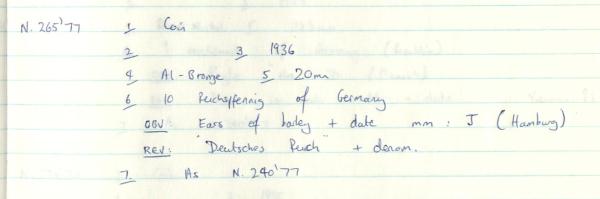 N. 265'77 1 Coin
2 3 1936
4 Al-Bronze 5 20mm
6 10 Reichspfennig of Germany
OBV: Ears of barley + date mm: J (Hamburg)
REV: "Deutsches Reich" + denom.
7. As N. 240'77